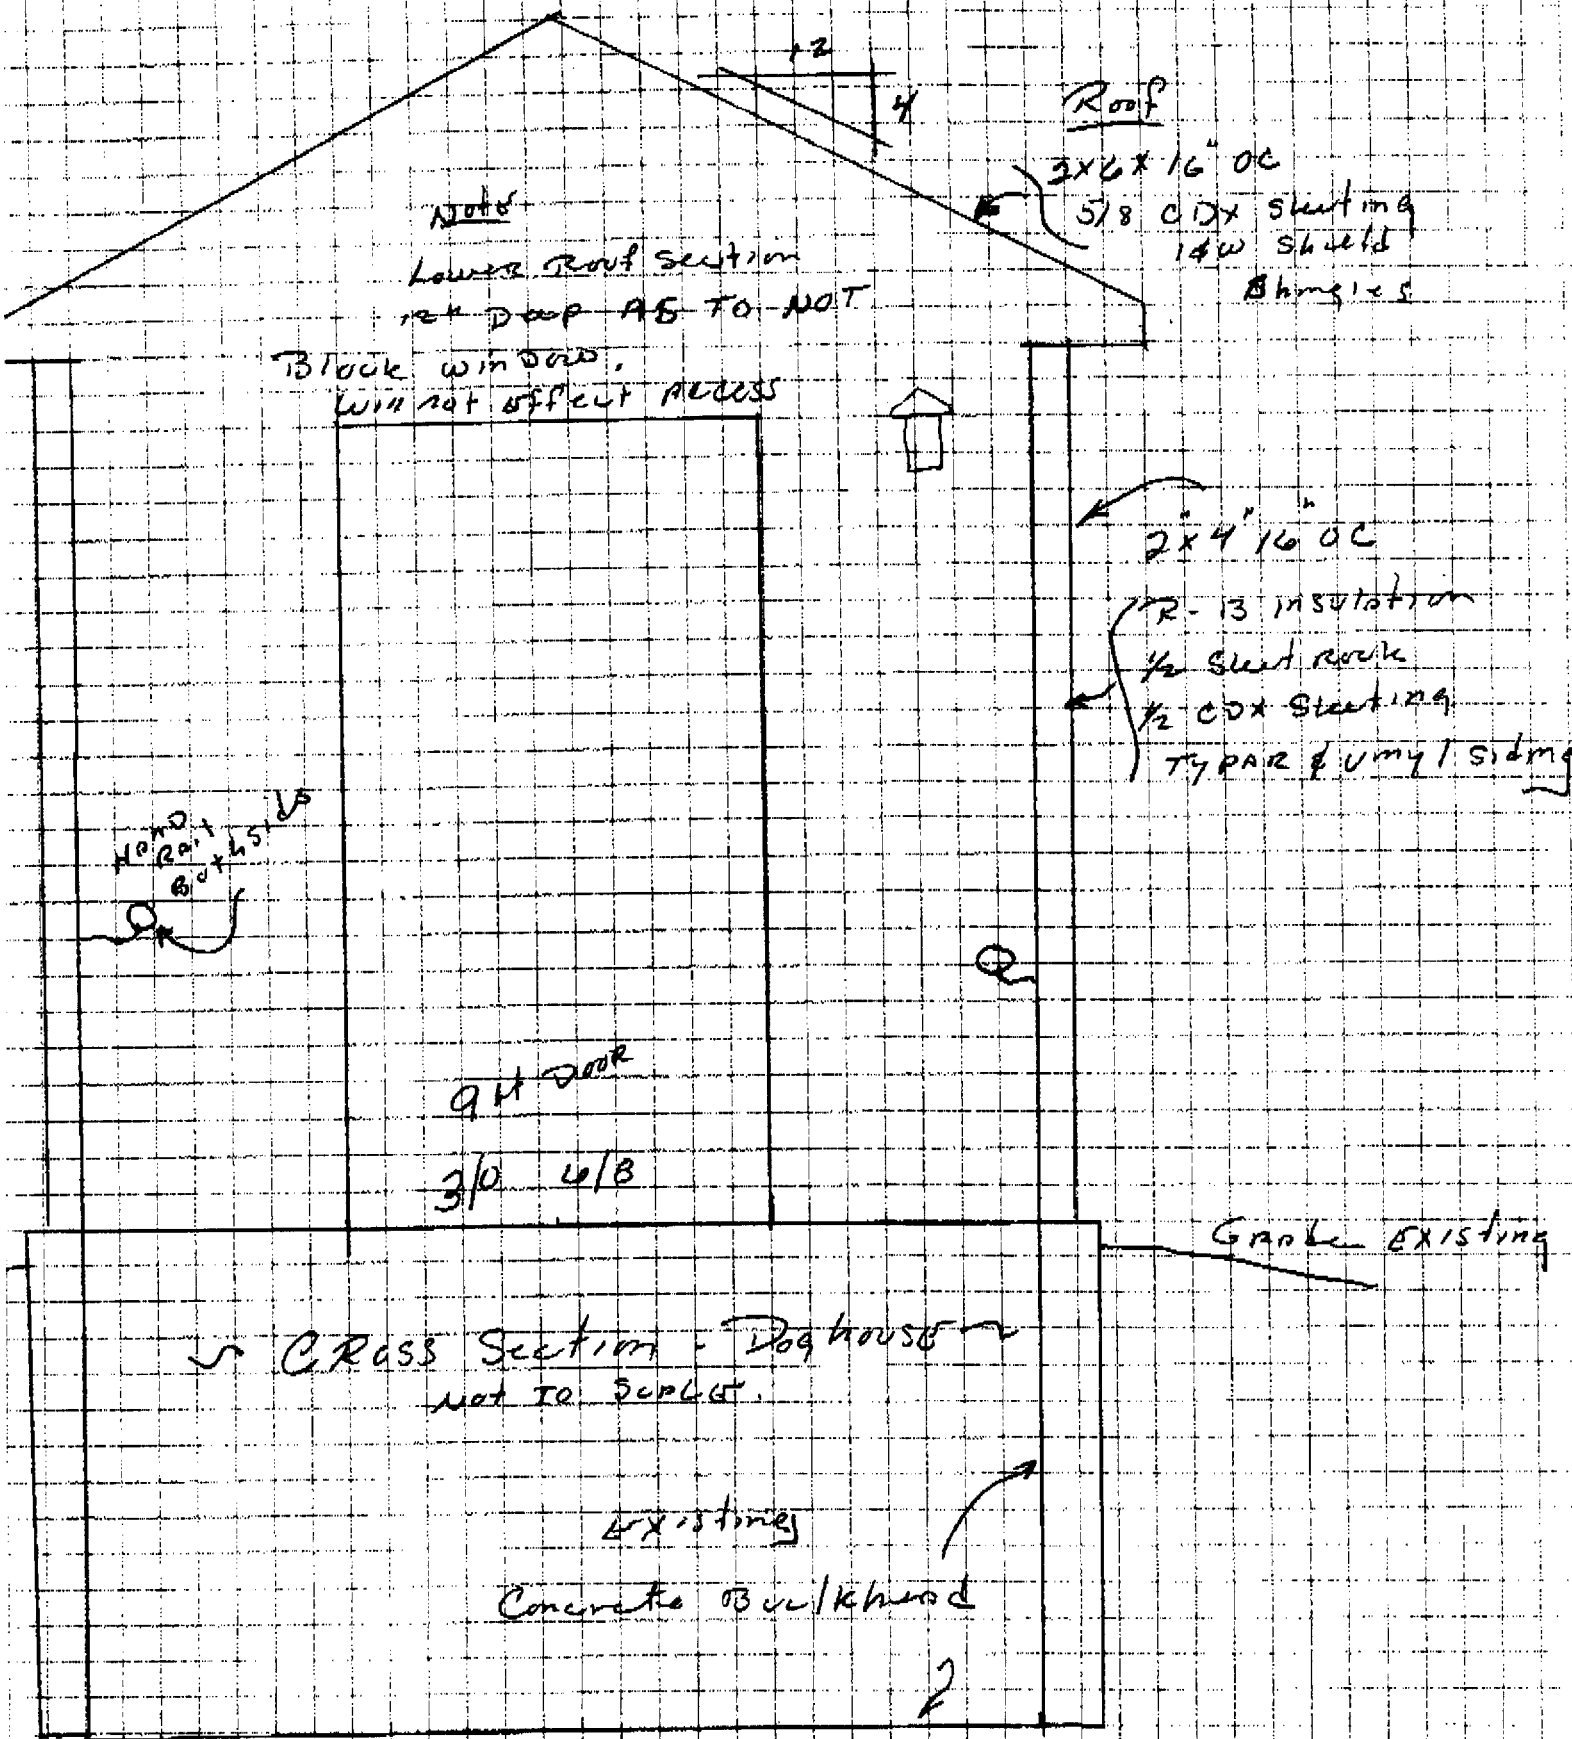 12
4
Roof
2x6x16" OC
5/8 CDX Sheeting
I&W Shield
Shingles
Note
Lower Roof Section
12" Deep AS TO NOT
Block winDow.
Will not effect ACCESS
2"x4" 16" OC
R-13 insulation
1/2 Sheet Rock
1/2 CDX Sheeting
TYPAR & vinyl siding
HAND
Rail
Both Sides
9 Lt DooR
3/0 6/8
Grade Existing
CRoss Section - Doghouse
Not To Scale.
Existing
Concrete Bulkhead